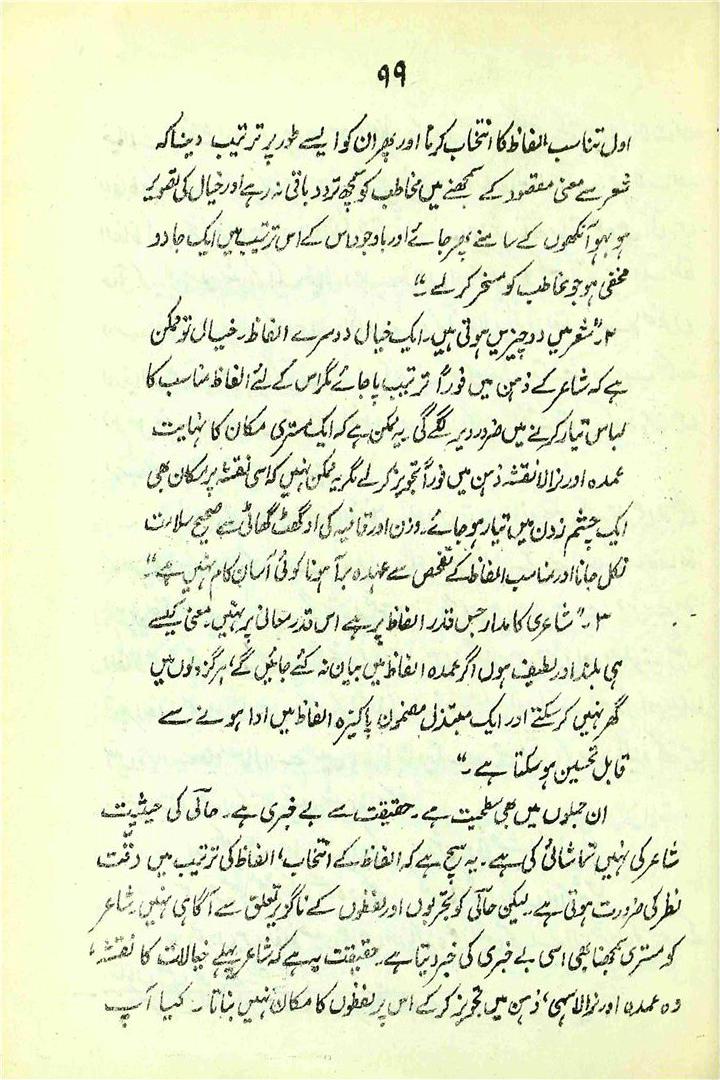 ۹۹
اول تناسب الفاظ کا انتخاب کرنا اور پھر ان کو ایسے طور پر ترتیب دینا کہ
شعر سے معنی مقصود کے سمجھنے میں مخاطب کو کچھ تردد باقی نہ رہے اور خیال کی تصویر
ہو بہو آنکھوں کے سامنے پھر جائے اور باوجود اس کے اس ترتیب میں ایک جادو
مخفی ہو جو مخاطب کو مسخر کر لے۔“
۲۔ ”شعر میں دو چیزیں ہوتی ہیں۔ ایک خیال دوسرے الفاظ۔ خیال تو ممکن
ہے کہ شاعر کے ذہن میں فوراً ترتیب پا جائے مگر اس کے لئے الفاظ مناسب کا
لباس تیار کرنے میں ضرور دیر لگے گی۔ یہ ممکن ہے کہ ایک مستری مکان کا نہایت
عمدہ اور نرالا نقشہ ذہن میں فوراً تجویز کر لے مگر یہ ممکن نہیں کہ اسی نقشہ پر مکان بھی
ایک چشم زدن میں تیار ہو جائے۔ وزن اور قافیہ کی اوگھٹ گھاٹی سے صحیح سلامت
نکل جانا اور مناسب الفاظ کے تفحص سے عہدہ برآ ہونا کوئی آسان کام نہیں ہے۔“
۳۔ ”شاعری کا مدار جس قدر الفاظ پر ہے اس قدر معانی پر نہیں۔ معنی کیسے
ہی بلند اور لطیف ہوں اگر عمدہ الفاظ میں بیان نہ کئے جائیں گے، ہرگز دلوں میں
گھر نہیں کر سکتے اور ایک مبتذل مضمون پاکیزہ الفاظ میں ادا ہونے سے
قابل تحسین ہو سکتا ہے۔“
ان جملوں میں بھی سطحیت ہے۔ حقیقت سے بے خبری ہے۔ حالی کی حیثیت
شاعر کی نہیں تماشائی کی ہے۔ یہ سچ ہے کہ الفاظ کے انتخاب، الفاظ کی ترتیب میں دقّت
نظر کی ضرورت ہوتی ہے۔ لیکن حالی کو تجربوں اور لفظوں کے ناگزیر تعلق سے آگاہی نہیں۔ شاعر
کو مستری سمجھنا بھی اسی بے خبری کی خبر دیتا ہے۔ حقیقت یہ ہے کہ شاعر پہلے خیالات کا نقشہ،
وہ عمدہ اور نرالا سہی، ذہن میں تجویز کر کے اس پر لفظوں کا مکان نہیں بناتا۔ کیا آپ